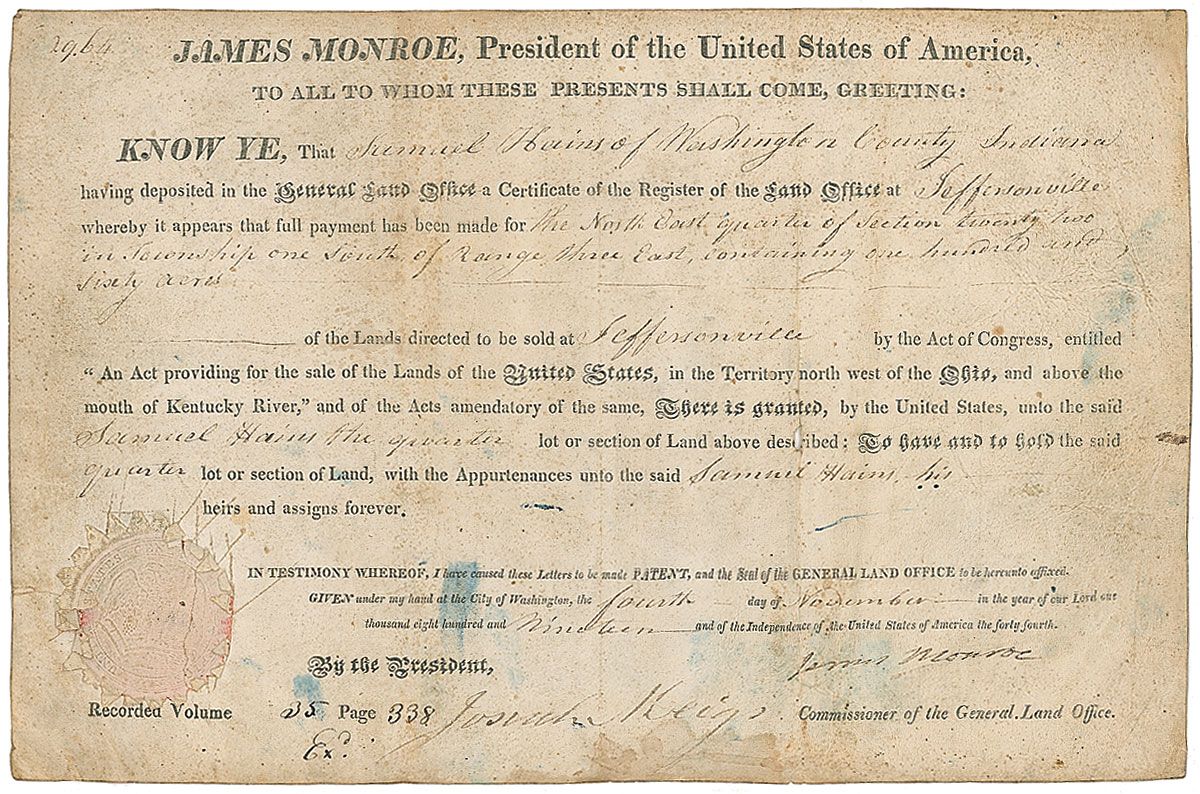 JAMES MONROE, President of the United States of America,
TO ALL TO WHOM THESE PRESENTS SHALL COME, GREETING:
KNOW YE, That Samuel Hains of Washington County Indiana
having deposited in the General Land Office a Certificate of the Register of the Land Office at Jeffersonville
whereby it appears that full payment has been made for the North East quarter of Section twenty two
in Township one South of Range three East, containing one hundred and
sixty acres
of the Lands directed to be sold at Jeffersonville by the Act of Congress, entitled
“An Act providing for the sale of the Lands of the United States, in the Territory north west of the Ohio, and above the
mouth of Kentucky River,” and of the Acts amendatory of the same, There is granted, by the United States, unto the said
Samuel Hains the quarter lot or section of Land above described: To have and to hold the said
quarter lot or section of Land, with the Appurtenances unto the said Samuel Hains, his
heirs and assigns forever.
IN TESTIMONY WHEREOF, I have caused these Letters to be made PATENT, and the Seal of the GENERAL LAND OFFICE to be hereunto affixed.
GIVEN under my hand at the City of Washington, the fourth day of November in the year of our Lord one
thousand eight hundred and Nineteen and of the Independence of the United States of America the forty-fourth.
By the President,
James Monroe
Recorded Volume 25 Page 338 Josiah Meigs Commissioner of the General Land Office.
Exd.